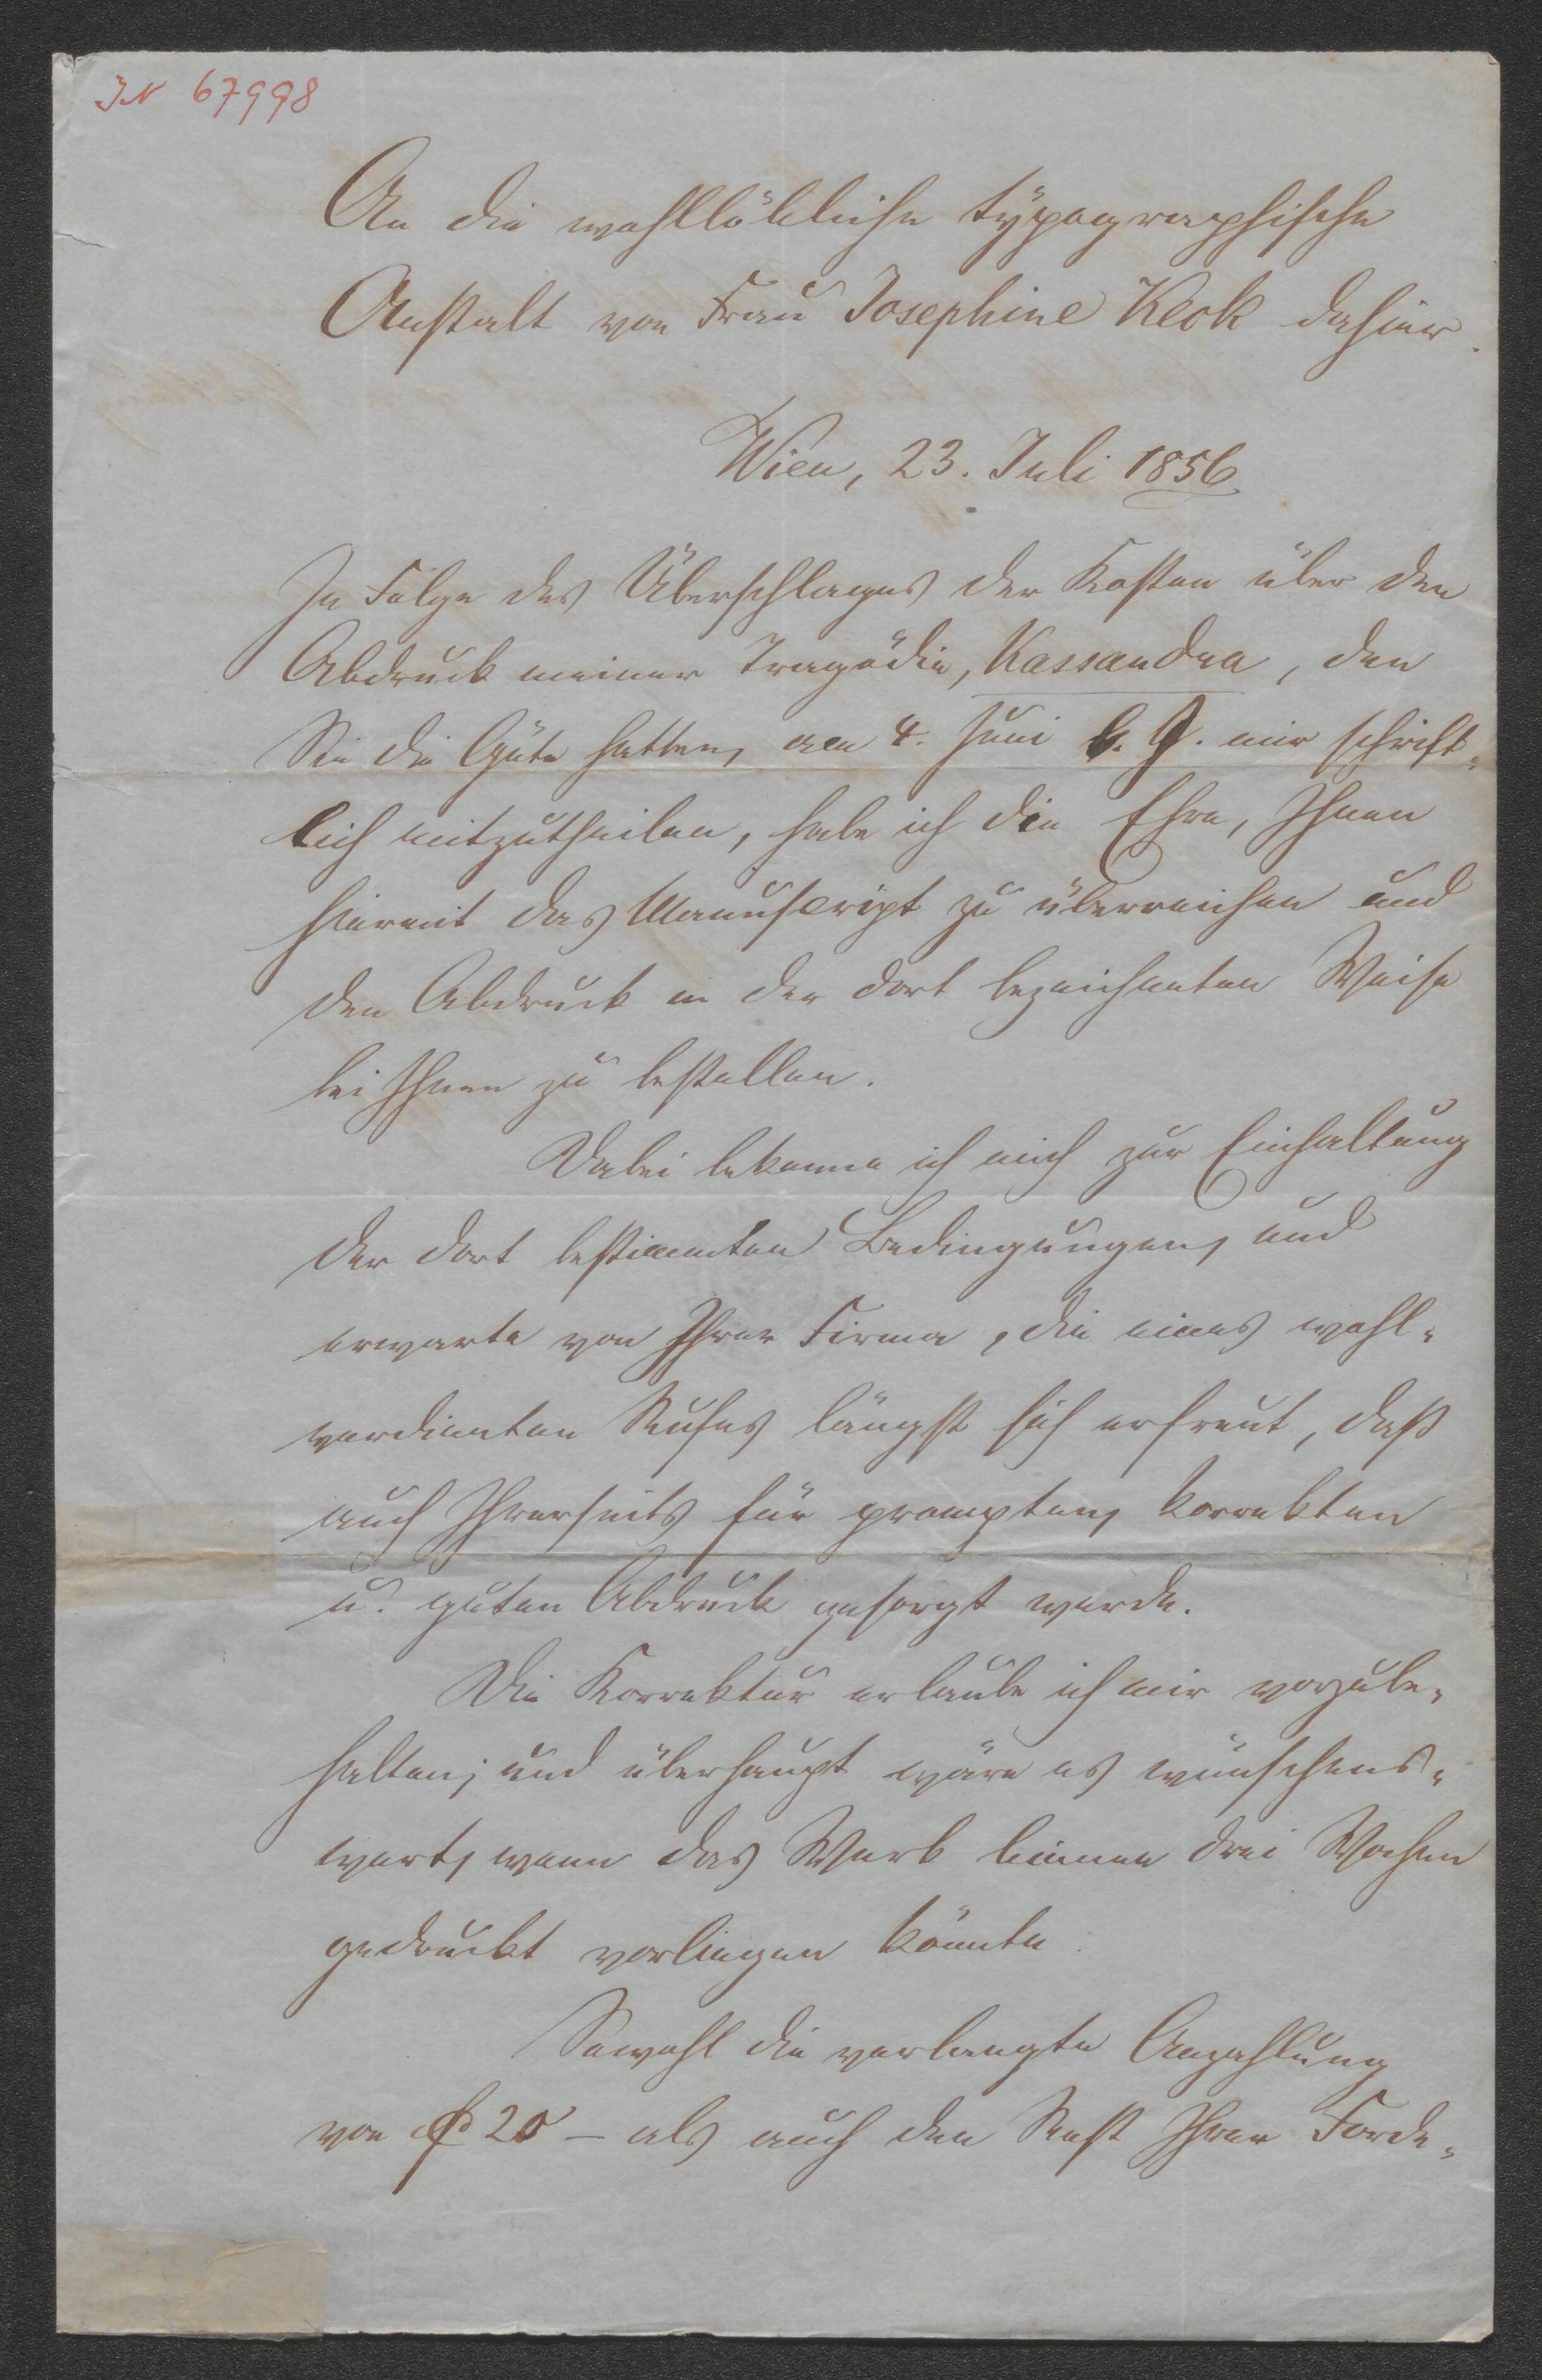 IN 67998
An die wohllöbliche typographische
Anstalt von Frau Josephine Keck dahier.
Wien, 23. Juli 1856
In Folge des Überschlages der Kosten über den
Abdruck meiner Tragödie, Kassandra, den
Sie die Güte hatten, am 4. Juni l. J. mir schrift-
lich mitzutheilen, habe ich die Ehre, Ihnen
hiermit das Manuscript zu überreichen und
den Abdruck in der dort bezeichneten Weise
bei Ihnen zu bestellen.
Dabei bekenne ich mich zur Einhaltung
der dort bestimmten Bedingungen, und
erwarte von Ihrer Firma, die eines wohl-
verdienten Rufes längst sich erfreut, daß
auch Ihrerseits für prompten, korrekten
u. guten Abdruck gesorgt werde.
Die Korrektur erlaube ich mir vorzube-
halten; und überhaupt wäre es wünschens-
wert, wenn das Werk binnen drei Wochen
gedruckt vorliegen könnte.
Sowohl die verlangte Anzahlung
von f 20 – als auch den Rest Ihrer Forde-